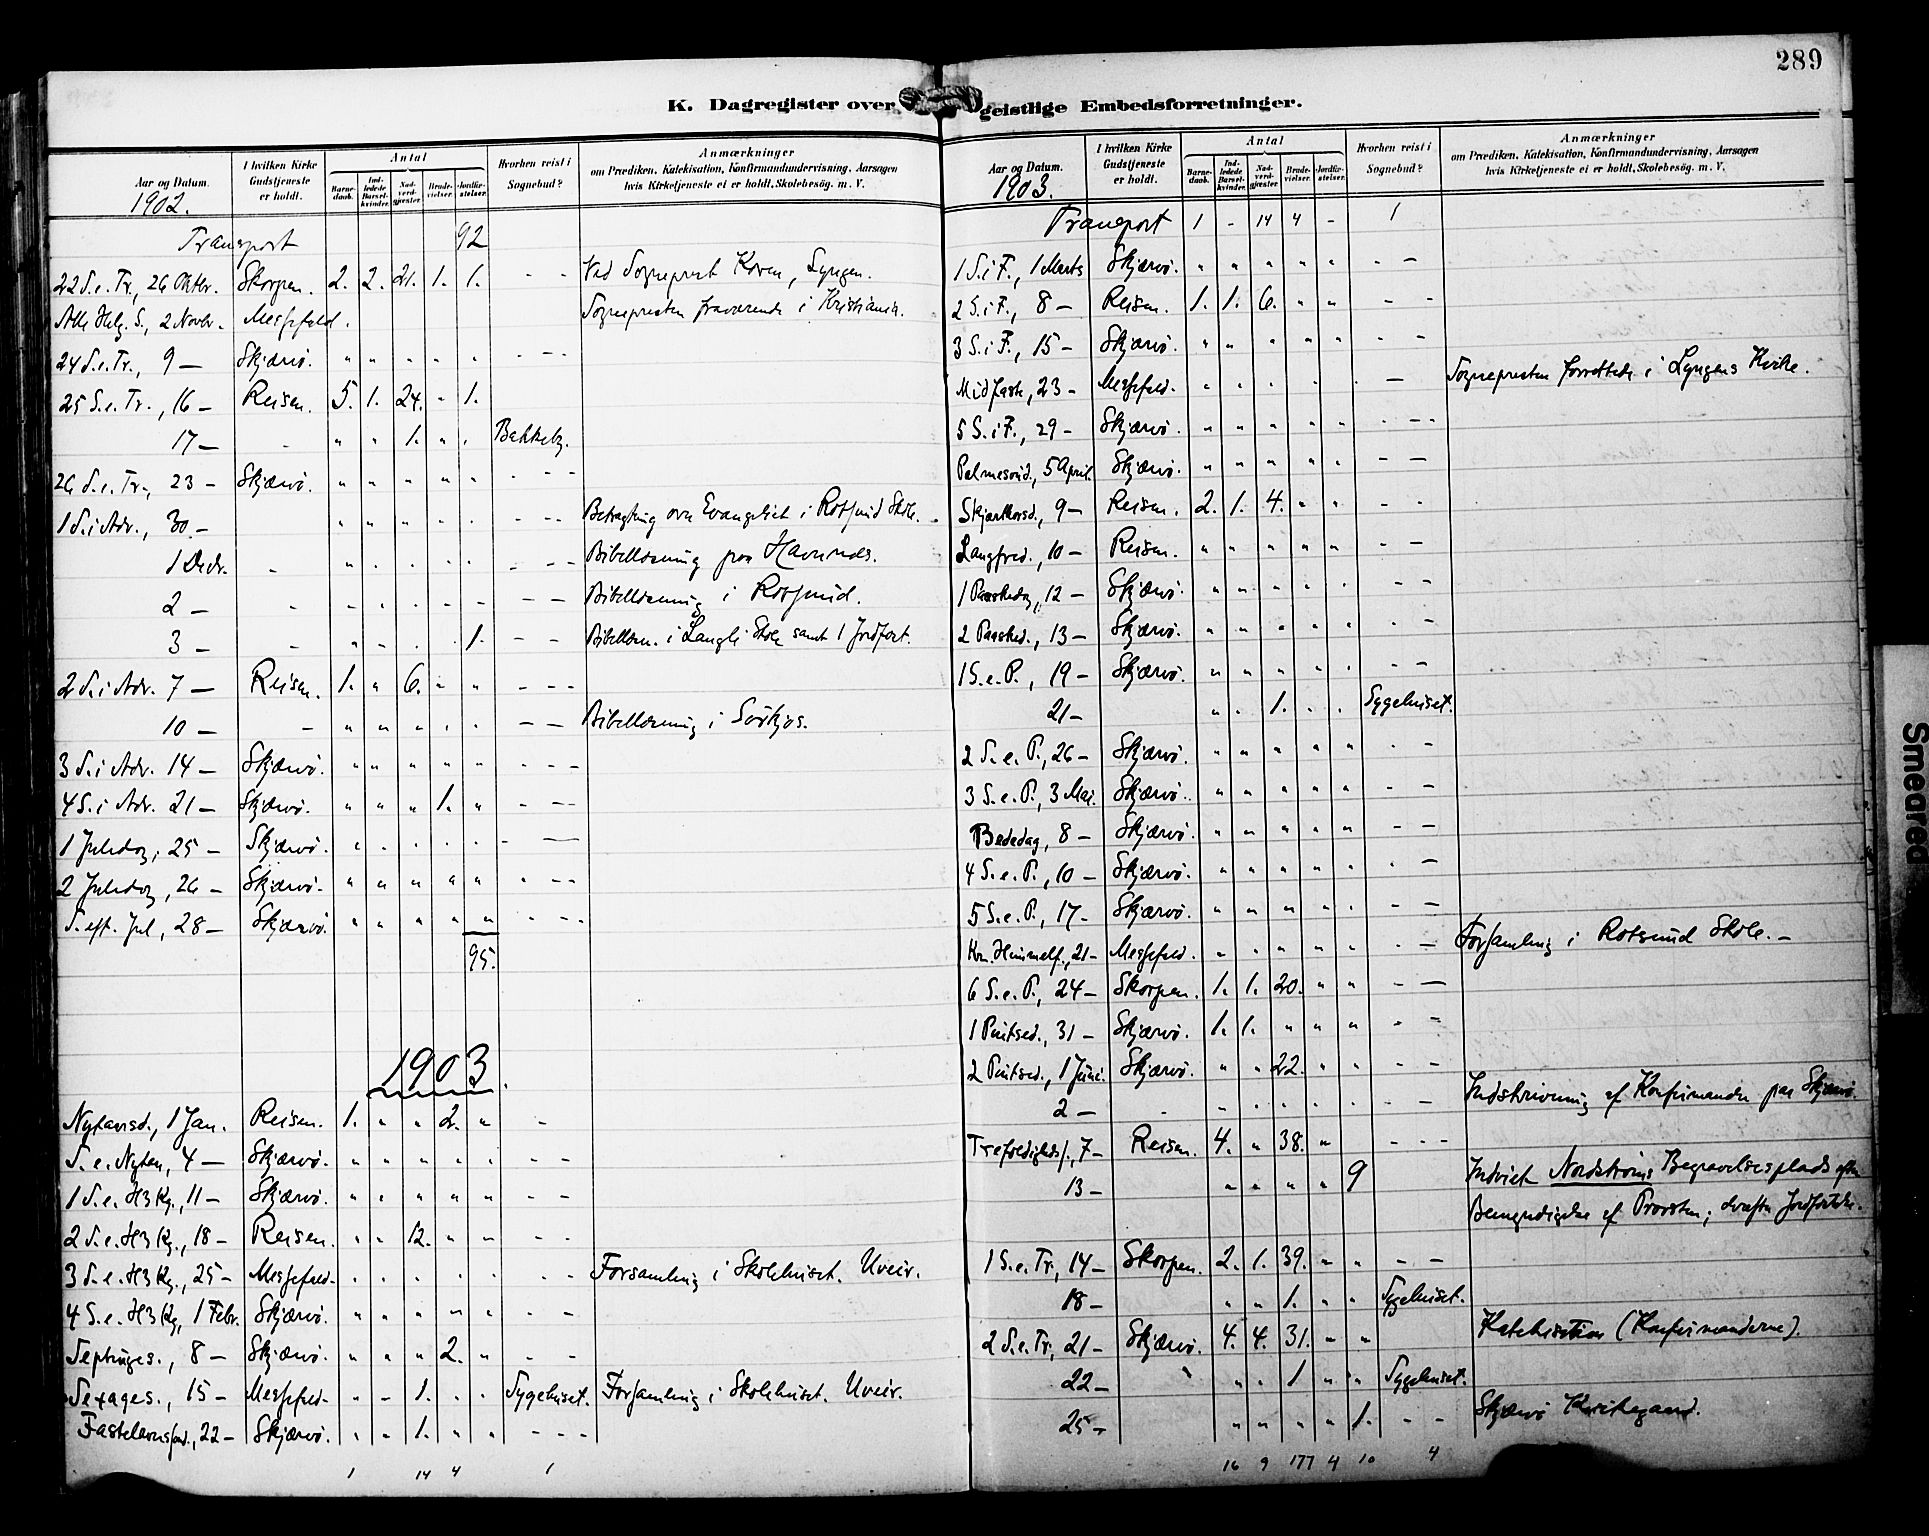 289
K. Dagregister over geistlige Embedsforretninger.
Aar og Datum. 1902. | I hvilken Kirke Gudstjeneste er holdt. | Antal | Barnedaab. | Indledede Barselkvinder. | Nadverdgjæster | Brudevielser. | Jordfæstelser. | Hvorhen reist i Sognebud? | Anmærkninger om Prædiken, Katekisation, Konfirmandundervisning, Aarsagen hvis Kirketjeneste ei er holdt, Skolebesög. m. V.
Transport 92
22 S. e. Tr., 26 Oktbr. Skorpen. 2. 2. 21. 1. 1. - - Ved Sogneprest Koren, Lyngen.
Alle Helg. S., 2 Novbr. Messefald. Sognepresten fraværende i Kristiania.
24 S. e. Tr., 9 — Skjærvö. " " " " " - - -
25 S. e. Tr., 16 — Reisen. 5. 1. 24. " 1.
17 — - " " 1. " " Bakkeby.
26 S. e. Tr., 23 — Skjærvö. " " " " " - - -
1 S. i Adv., 30. — " " " " " - - - Betragtning over Evangeliet i Rotsund Skole.
1 Decbr. - " " " " " - - - Bibellæsning paa Havnnes.
2 — - - - - - - - - Bibellæsning i Rotsund.
3 — - " " " " 1. - - Bibellæsn. i Langli Skole samt 1 Jordfæst.
2 S. i Adv. 7 — Reisen. 1. " 6. " " - - -
10 — - " " " " " - - Bibellæsning i Sörkjos.
3 S. i Adv. 14 — Skjærvö. " " " " " - - -
4 S. i Adv. 21 — Skjærvö. " " " 1. " - - -
1 Juledag, 25 — Skjærvö. " " " " " - —
2 Juledag, 26 — Skjærvö. " " " " " " - -
S. eft. Jul, 28 — Skjærvö. " " " " " - - -
95.
1903.
Nytaarsd., 1 Jan. Reisen. 1. " " 2. " -
S. e. Nytaar, 4 — Skjærvö. " " " " " - -
1 S. e. H3 Kg., 11 — Skjærvö. " " " " " - -
2 S. e. H3 Kg., 18 — Reisen. " " 12. " " - -
3 S. e. H3 Kg., 25 — Messefald. " " " " " - - Forsamling i Skolehuset. Uveir.
4 S. e. H3 Kg., 1 Febr. Skjærvö. " " " " " - -
Septuages., 8 — Skjærvö. " " " 2. " - -
Sexages., 15 — Messefald. " " 1. " " Sygehuset. Forsamling i Skolehuset. Uveir.
Fastelavnssønd., 22 — Skjærvö. " " 1. " " - - -
1 14 4 1
Aar og Datum. 1903. | I hvilken Kirke Gudstjeneste er holdt. | Antal | Barnedaab. | Indledede Barselkvinder. | Nadverdgjæster | Brudevielser. | Jordfæstelser. | Hvorhen reist i Sognebud? | Anmærkninger om Prædiken, Katekisation, Konfirmandundervisning, Aarsagen hvis Kirketjeneste ei er holdt, Skolebesög. m. V.
Transport 1 - 14 4 - 1
1 S. i F., 1 Marts Skjærvö. " " " " " - -
2 S. i F., 8 — Reisen. 1. 1. 6. " " - -
3 S. i F., 15 — Skjærvö. " " " " " - -
Midfaste, 23 — Messefald. " " " " " - — Sognepresten forrettede i Lyngens Kirke.
5 S. i F., 29 — Skjærvö. " " " " " - - -
Palmesönd., 5 April. Skjærvö. " " " " " - - -
Skjærtorsd., 9 — Reisen. 2. 1. 4. " " - -
Langfred., 10 — Reisen. " " " " " - -
1 Paaskedag, 12 — Skjærvö. " " " " " - -
2 Paasked., 13 — Skjærvö. " " " " " - -
1 S. e. P., 19 — Skjærvö. " " " " " - -
21 — " " 1. " " Sygehuset.
2 S. e. P., 26 — Skjærvö. " " " " " - -
3 S. e. P., 3 Mai. Skjærvö. " " " " " - -
Bededag, 8 — Skjærvö. " " " " " - -
4 S. e. P., 10 — Skjærvö. " " " " " - -
5 S. e. P., 17 — Skjærvö. " " " " " - -
Kr. Himmelf., 21 — Messefald. " " " " " - — Forsamling i Rotsund Skole. —
6 S. e. P., 24 — Skorpen. 1. 1. 20. " " - —
1 Pintsed., 31 — Skjærvö. 1. 1. " " " - -
2 Pintsed., 1 Juni. Skjærvö. " " 22. " " - -
2 — - " " " " " - - Indskrivning af Konfirmander paa Skjærvö.
Trefoldighedsf., 7 — Reisen. 4. " 38. " - - -
13 — " " " " 9 Indviet Nordströms Begravelsesplads efter
Bemyndigelse af Provsten; derefter Jordfæstelse.
1 S. e. Tr., 14 — Skorpen. 2. 1. 39. " " - -
18 — " " 1. " " Sygehuset.
2 S. e. Tr., 21 — Skjærvö. 4. 4. 31. " " Katekisation (Konfirmanderne).
22 — " " 1 " " Sygehuset.
25 — " " " " 1. - - Skjærvö Kirkegaard.
16 9 177 4 10 4
Smeared